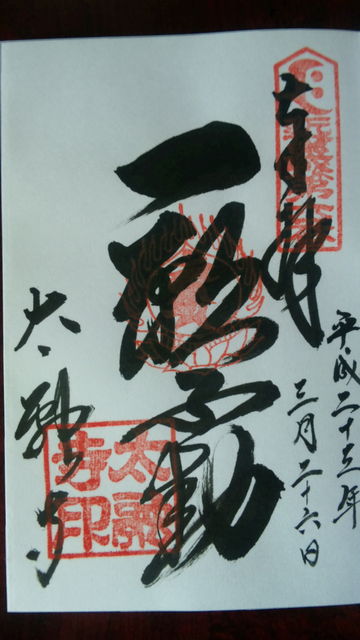 奉拝
平成二十三年
三月二十六日
一願不動
太融寺
太融
寺印